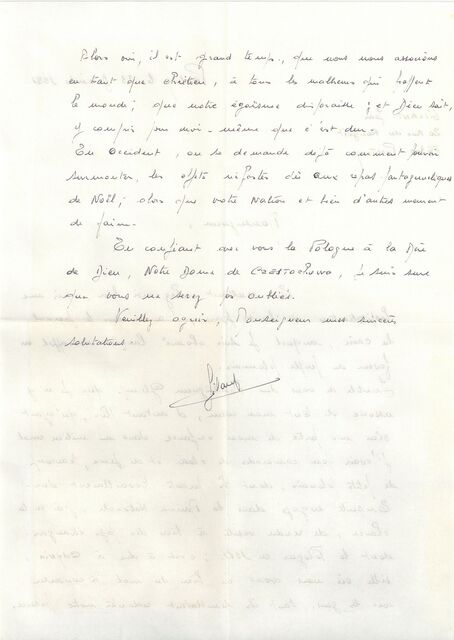 Alors oui, il est grand temps, que nous nous associons
en tant que chrétien, à tous les malheurs qui frappent
le monde; que notre égoïsme disparaisse; et Dieu sait,
y compris pour moi-même que c'est dur.
En Occident, on se demande déjà comment pouvoir
surmonter, les effets néfastes dûs aux repas pantagruéliques
de Noël; alors que votre Nation et bien d'autres meurent
de faim.
En confiant avec vous la Pologne à la Mère
de Dieu, Notre Dame de CZESTOCHOWA, je suis sûre
que vous ne serez pas oubliés.
Veuillez agréer, Monseigneur mes sincères
salutations